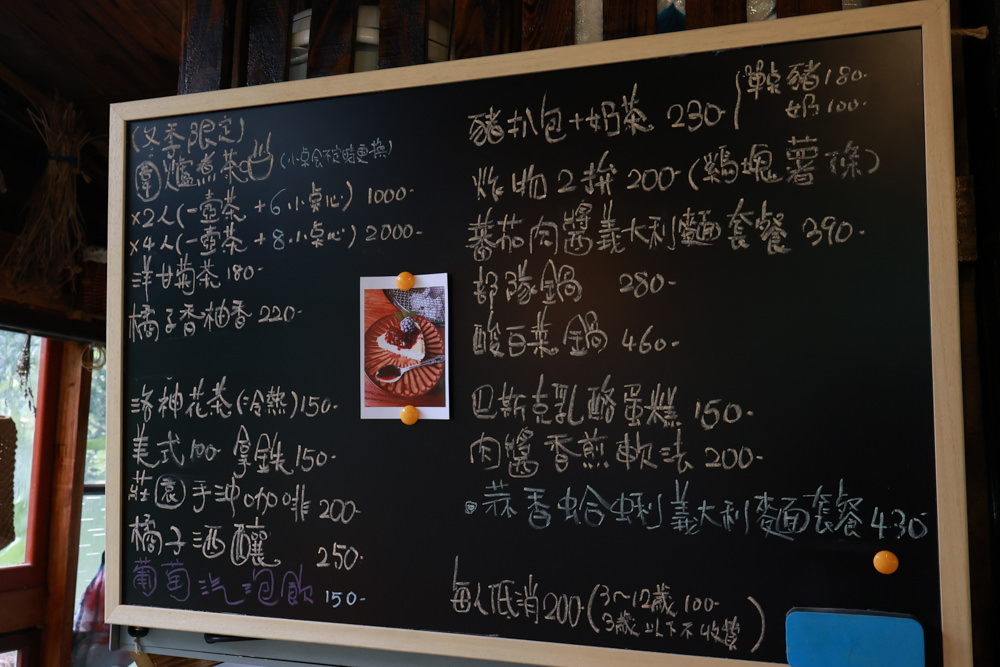 (冬季限定)
圍爐煮茶 (小桌會不定時更換)
×2人(一壺茶+6小桌心) 1000-
×4人(一壺茶+8小桌心) 2000-
洋甘菊茶 180-
橘子香柚香 220-
洛神花茶(冷熱)150-
美式100- 拿鐵150-
莊園手沖咖啡 200-
橘子酒釀 250-
葡萄汽泡飲 150-
豬扒包+奶茶 230 單點豬180-
奶100-
炸物2拼 200 (鷄塊薯條)
蕃茄肉醬義大利麵套餐 390-
部隊鍋 280-
酸白菜鍋 460-
巴斯克乳酪蛋糕 150-
肉醬香煎軟法 200-
蒜香蛤蜊義大利麵套餐430-
每人低消200 (3~12歲 100-
3歲以下不收費)